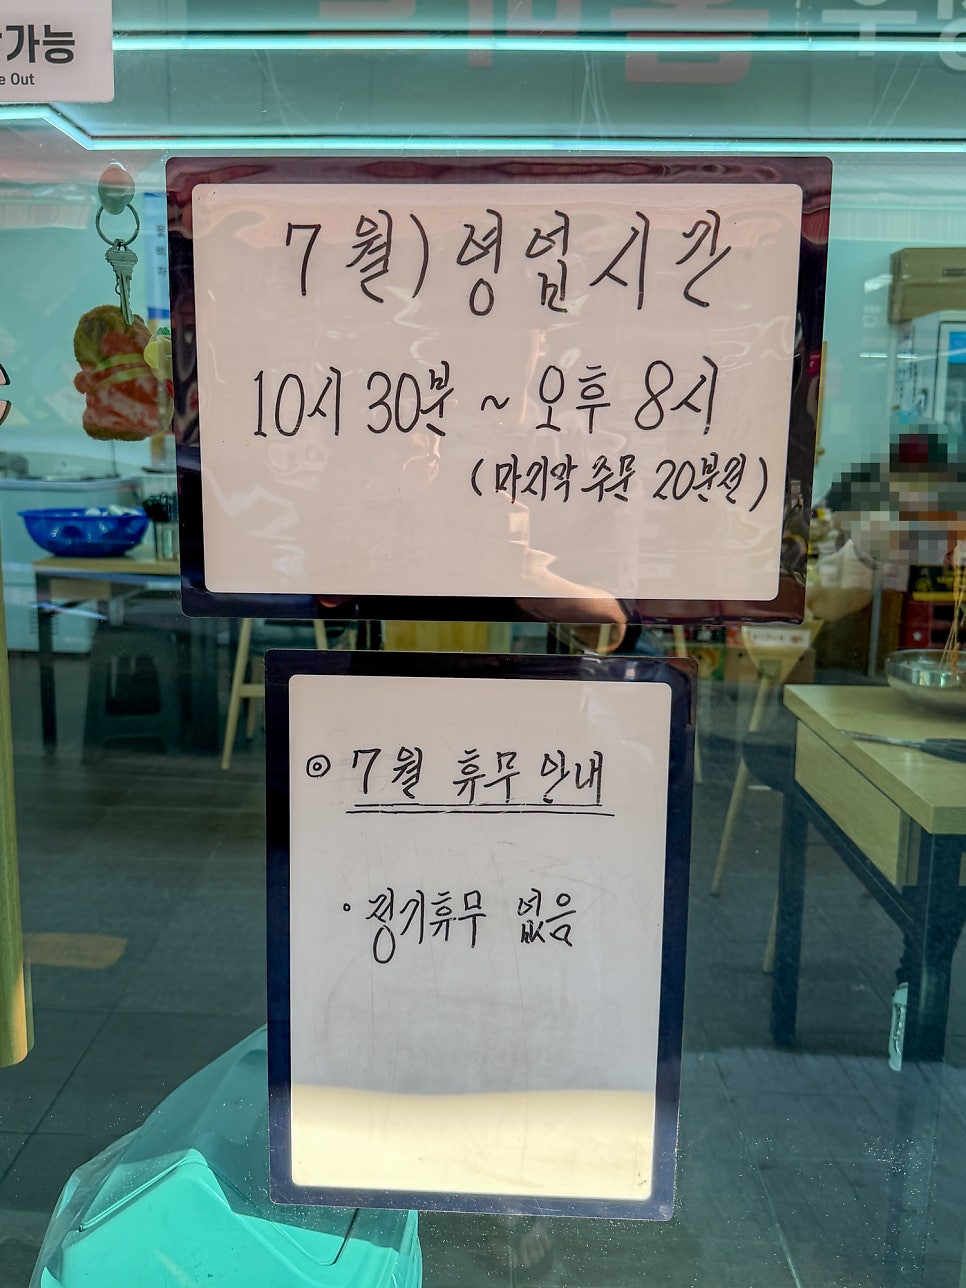 가능
e Out
7월) 영업시간
10시 30분 ~ 오후 8시
(마지막 주문 20분전)
◎ 7월 휴무 안내
· 정기휴무 없음